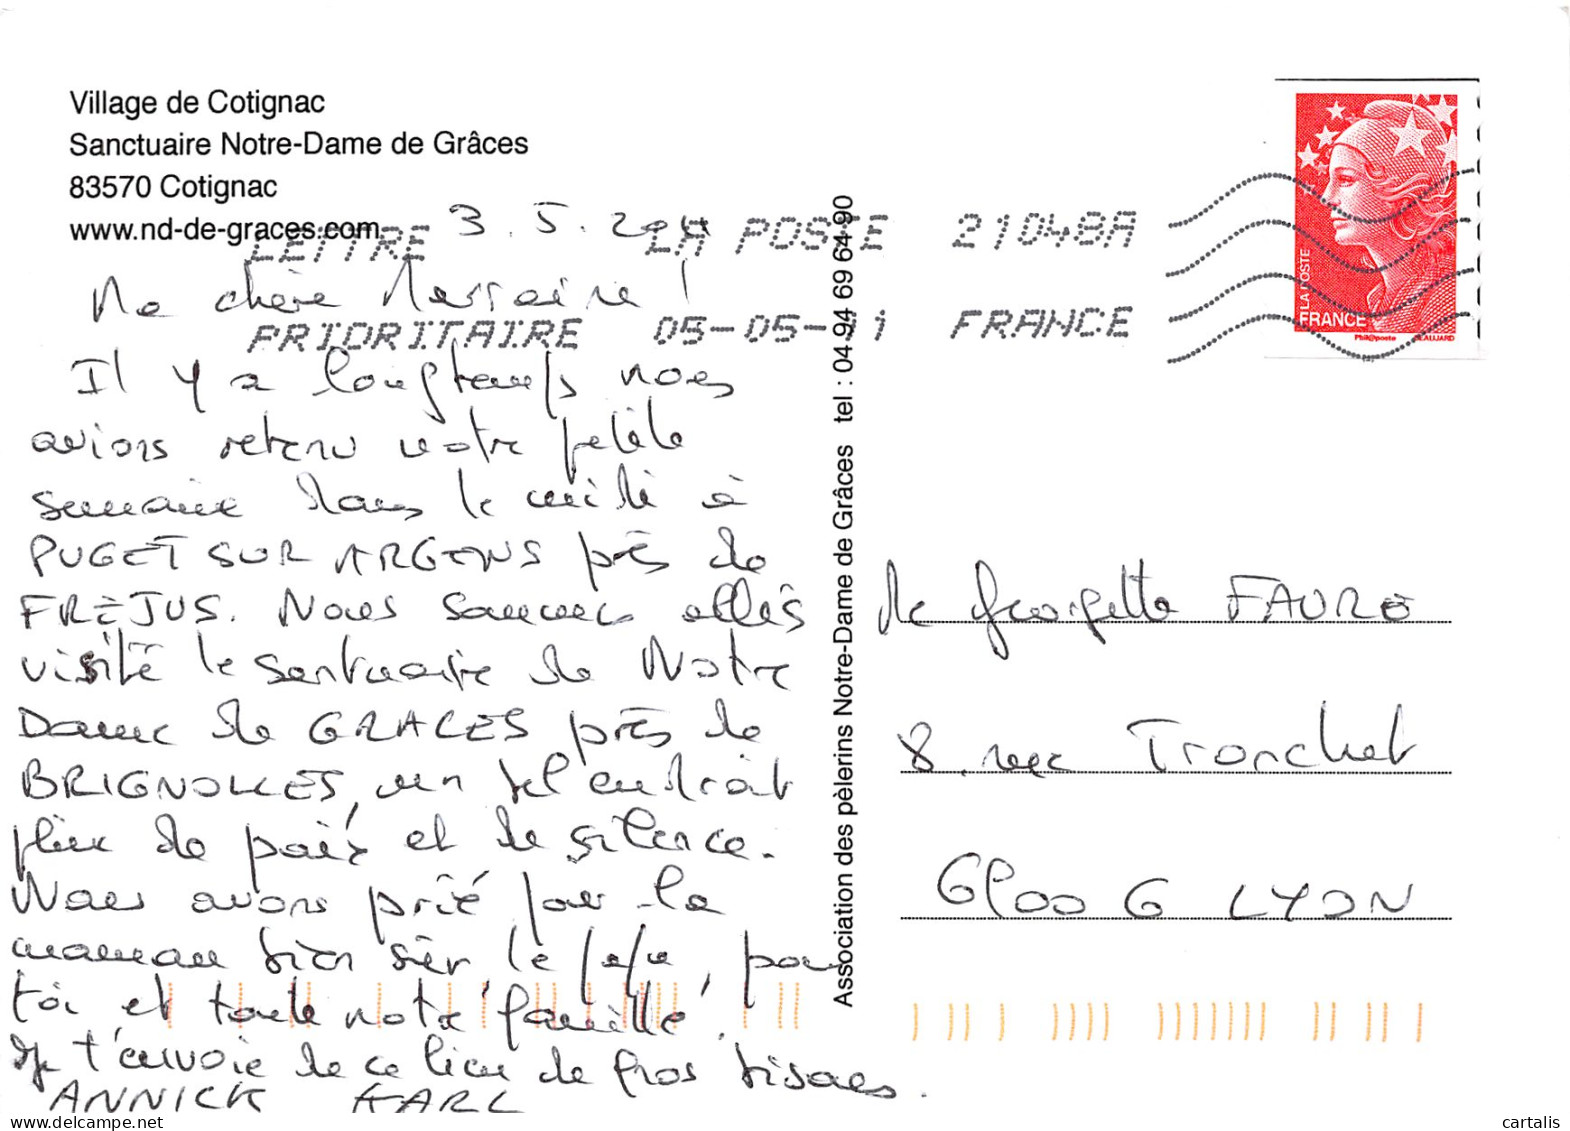 Village de Cotignac
Sanctuaire Notre-Dame de Grâces
83570 Cotignac
www.nd-de-graces.com
LETTRE
PRIORITAIRE
LA POSTE
05-05-11
21048A
FRANCE
LA POSTE
FRANCE
Phil@poste BEAUJARD
3.5.2011
Ma chère Marraine !
Il y a longtemps nous
avions retenu notre petite
semaine dans le midi à
PUGET SUR ARGENS près de
FRÉJUS. Nous sommes allés
visité le santuaire de Notre
Dame de GRACES près de
BRIGNOLLES, un tel endroit
plein de paix et de silence.
Nous avons prié pour la
maman bien sûr le papa, pour
toi et toute notre famille.
Je t'envoie de ce lieu de gros bisous.
ANNICK KARL
Association des pèlerins Notre-Dame de Grâces tel : 04 94 69 64 90
Me Georgette FAURE
8. rue Tronchet
69006 LYON
cartalis